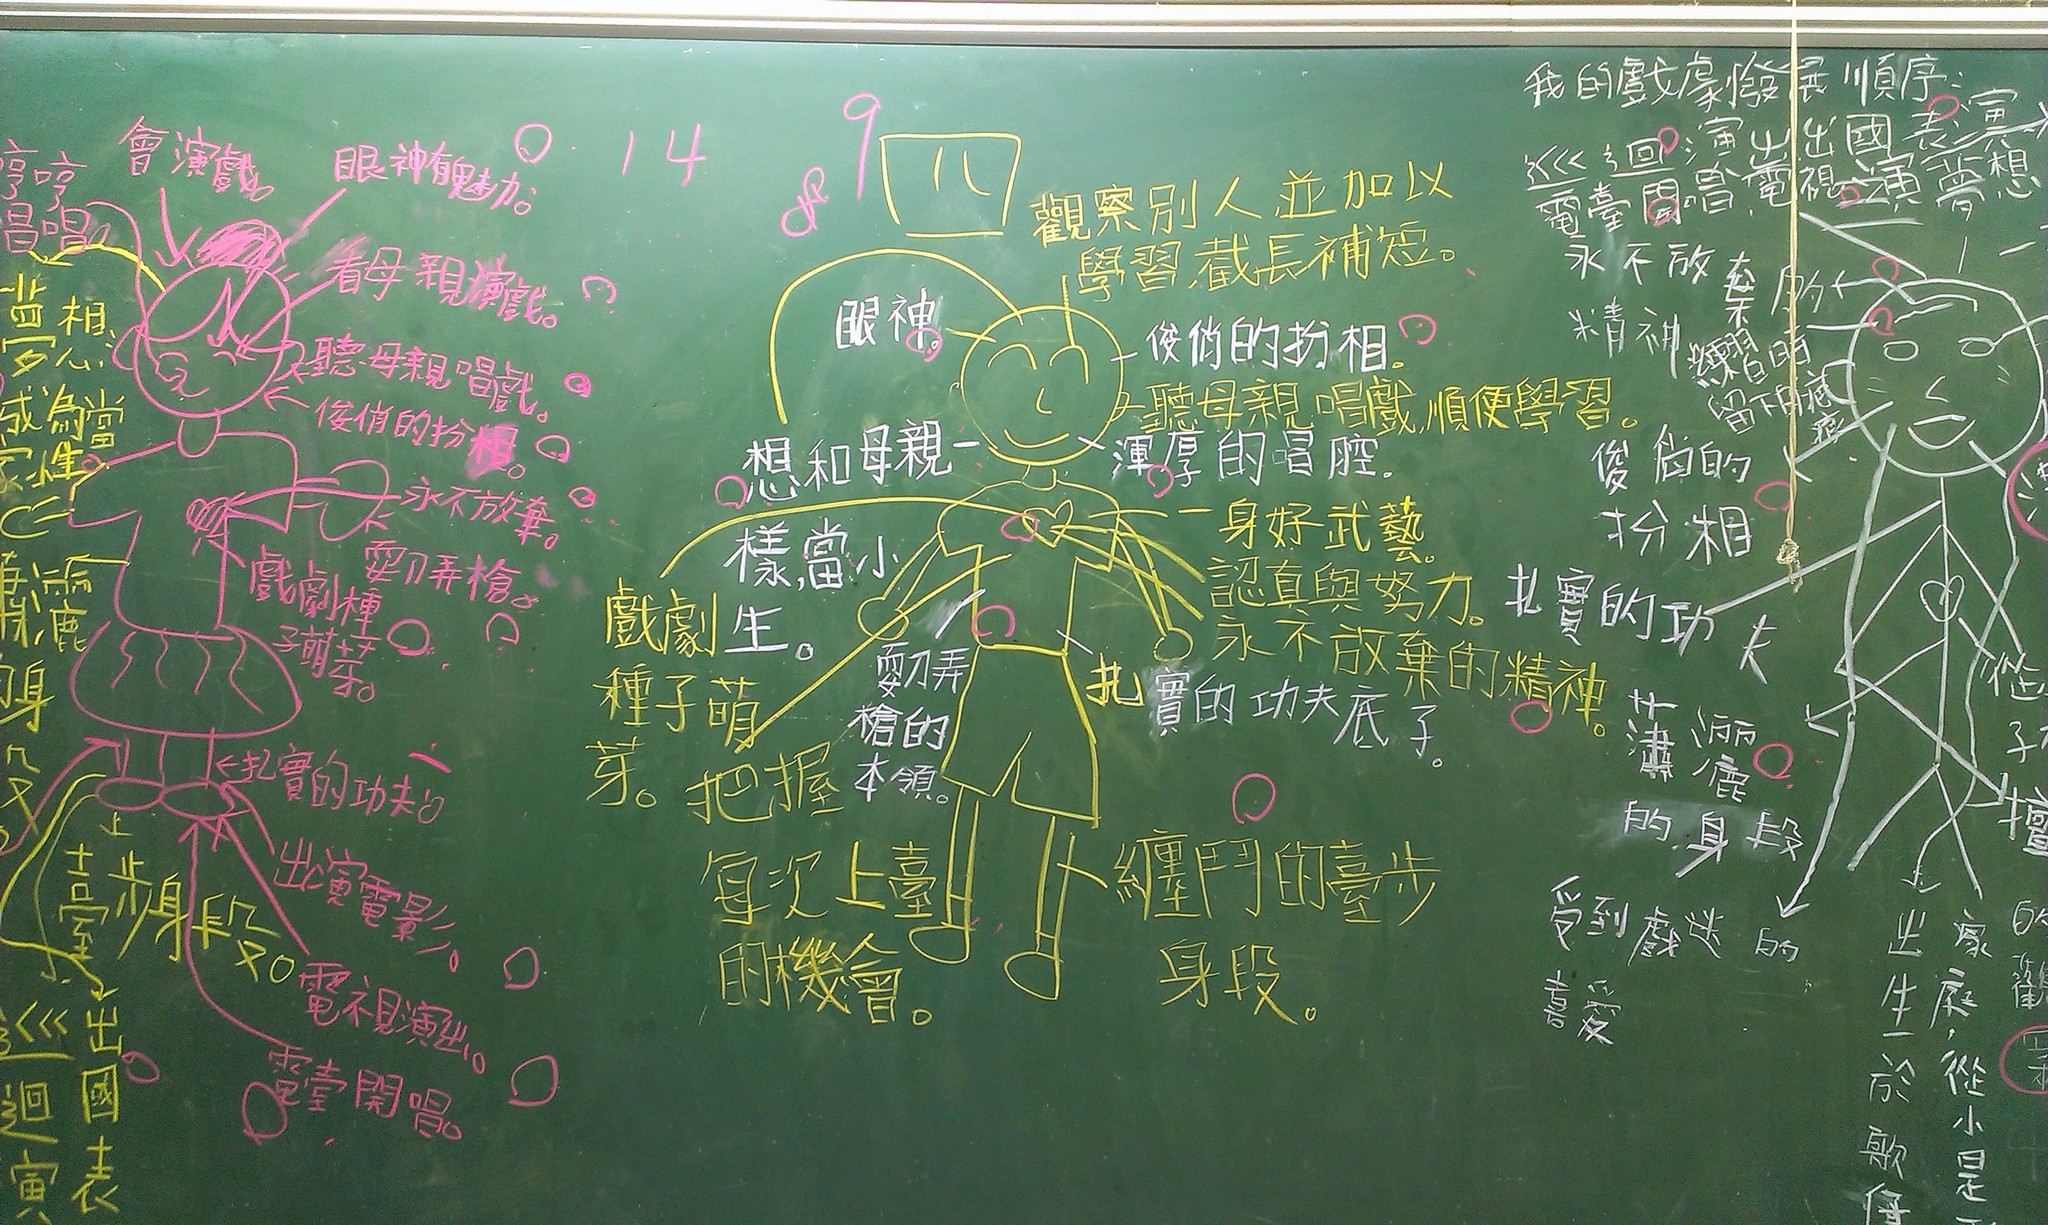 會演戲。
哼哼
唱唱
眼神有魅力。
看母親演戲。
聽母親唱戲。
俊俏的扮相。
永不放棄。
耍刀弄槍。
戲劇種
子萌芽。
扎實的功夫。
出演電影。
電視演出。
電臺開唱。
夢想
成為當
臺步身段。
出國表
巡迴演
14
9
八
觀察別人並加以
學習,截長補短。
眼神。
俊俏的扮相。
聽母親唱戲,順便學習。
渾厚的唱腔.
想和母親一
樣,當小
生。
一身好武藝。
認真與努力。
永不放棄的精神。
扎實的功夫底子。
戲劇
種子萌
芽。
耍刀弄
槍的
本領。
把握
每次上臺
的機會。
纏鬥的臺步
身段。
我的戲劇發展順序:
巡迴演出 出國表演
電臺開唱 電視演 夢想
永不放棄的
精神
練習時
留下的疤痕
俊俏的
扮相
扎實的功夫
瀟灑
的身段
受到戲迷的
喜愛
家庭,從小是
出生於歌